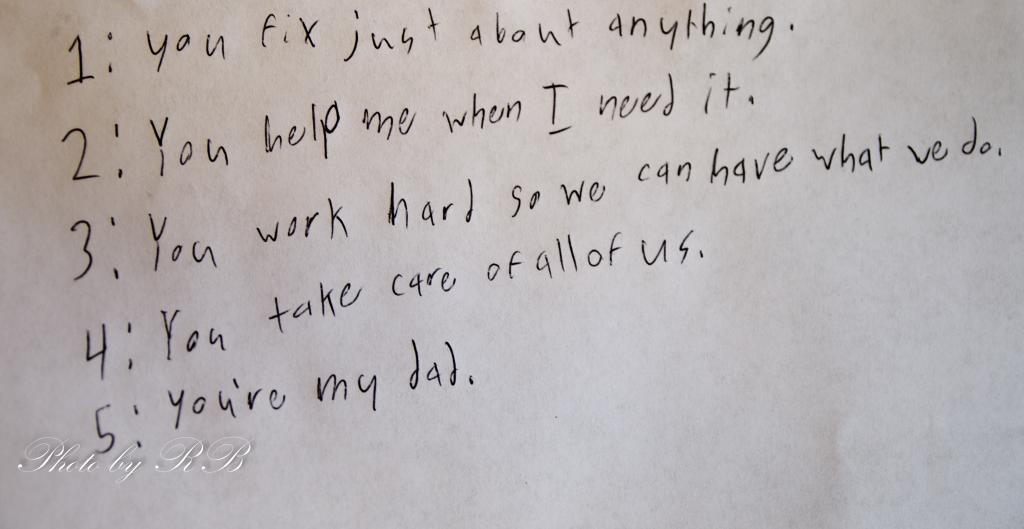 1: you fix just about anything.
2: You help me when I need it.
3: You work hard so we can have what we do.
4: You take care of all of us.
5: you're my dad.
Photo by RB